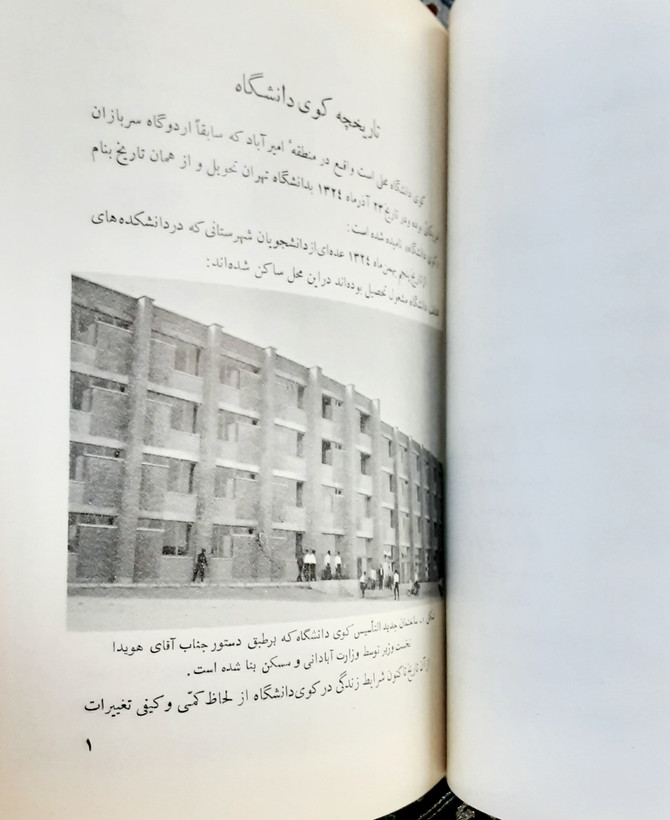 تاریخچه کوی دانشگاه
کوی دانشگاه محلی است واقع در منطقهٔ امیرآباد که سابقاً اردوگاه سربازان
بوده و در تاریخ ۲۳ آذرماه ۱۳۲٤ بدانشگاه تهران تحویل و از همان تاریخ بنام
کوی دانشگاه نامیده شده است:
از تاریخ پنجم بهمن‌ماه ۱۳۲٤ عده‌ای از دانشجویان شهرستانی که در دانشکده‌های
دانشگاه مشغول تحصیل بوده‌اند در این محل ساکن شده‌اند:
ساختمان جدید التأسیس کوی دانشگاه که برطبق دستور جناب آقای هویدا
نخست وزیر توسط وزارت آبادانی و مسکن بنا شده است.
از آن تاریخ تا کنون شرایط زندگی در کوی دانشگاه از لحاظ کمّی و کیفی تغییرات
۱